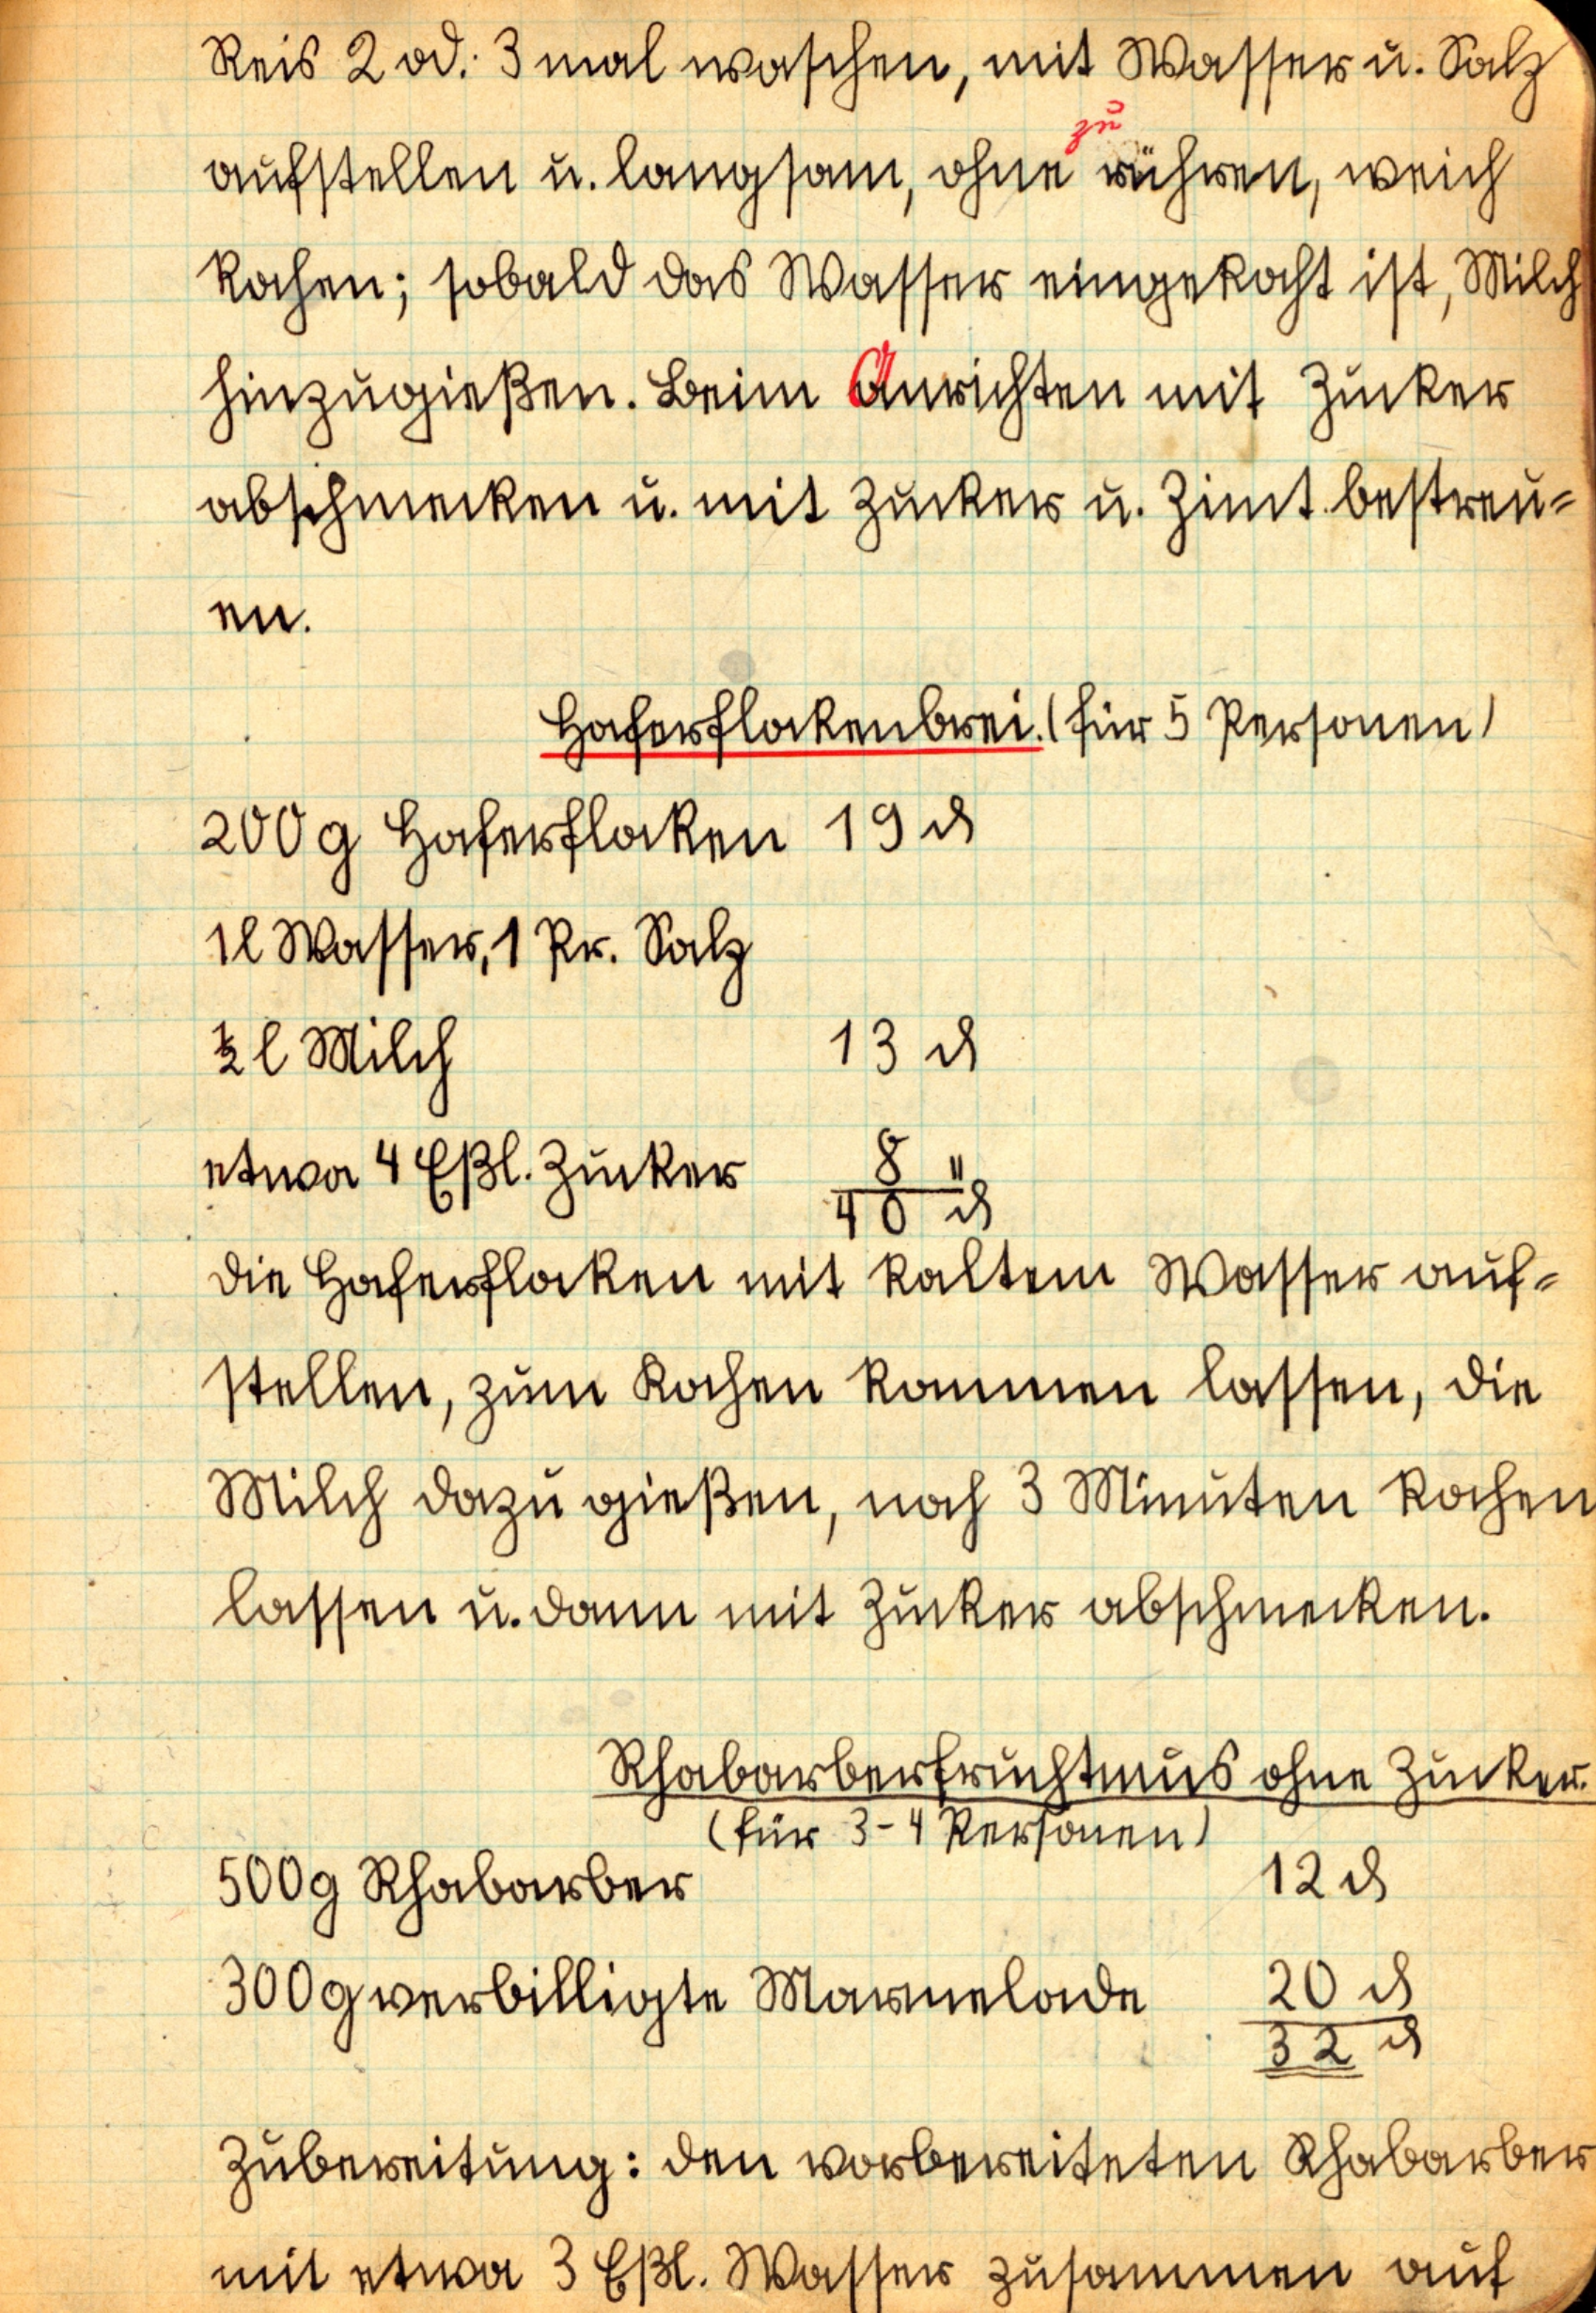 Reis 2 od. 3 mal waschen, mit Wasser u. Salz
aufstellen u. langsam, ohne zu rühren, weich
kochen; sobald das Wasser eingekocht ist, Milch
hinzugießen. Beim Anrichten mit Zucker
abschmecken u. mit Zucker u. Zimt bestreu-
en.
Haferflockenbrei. (für 5 Personen)
200 g Haferflocken 19 ₰
1 l Wasser, 1 Pr. Salz
½ l Milch 13 ₰
etwa 4 Eßl. Zucker 8 "
40 ₰
Die Haferflocken mit kaltem Wasser auf-
stellen, zum Kochen kommen lassen, die
Milch dazu gießen, noch 3 Minuten kochen
lassen u. dann mit Zucker abschmecken.
Rhabarberfruchtmus ohne Zucker.
(für 3-4 Personen)
500 g Rhabarber 12 ₰
300 g verbilligte Marmelade 20 ₰
32 ₰
Zubereitung: den vorbereiteten Rhabarber
mit etwa 3 Eßl. Wasser zusammen auf